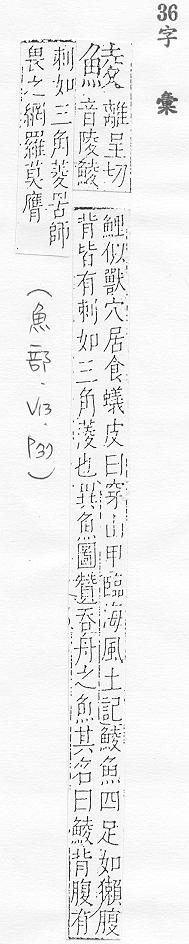 36字彙
鯪
離呈切
音陵鯪
鯉似獸穴居食蟻皮曰穿山甲臨海風土記鯪魚四足如獺腹
背皆有刺如三角菱也異魚圖贊吞舟之魚其名曰鯪背腹有
刺如三角菱罟師
畏之網羅莫膺
(魚部.V13.P37)